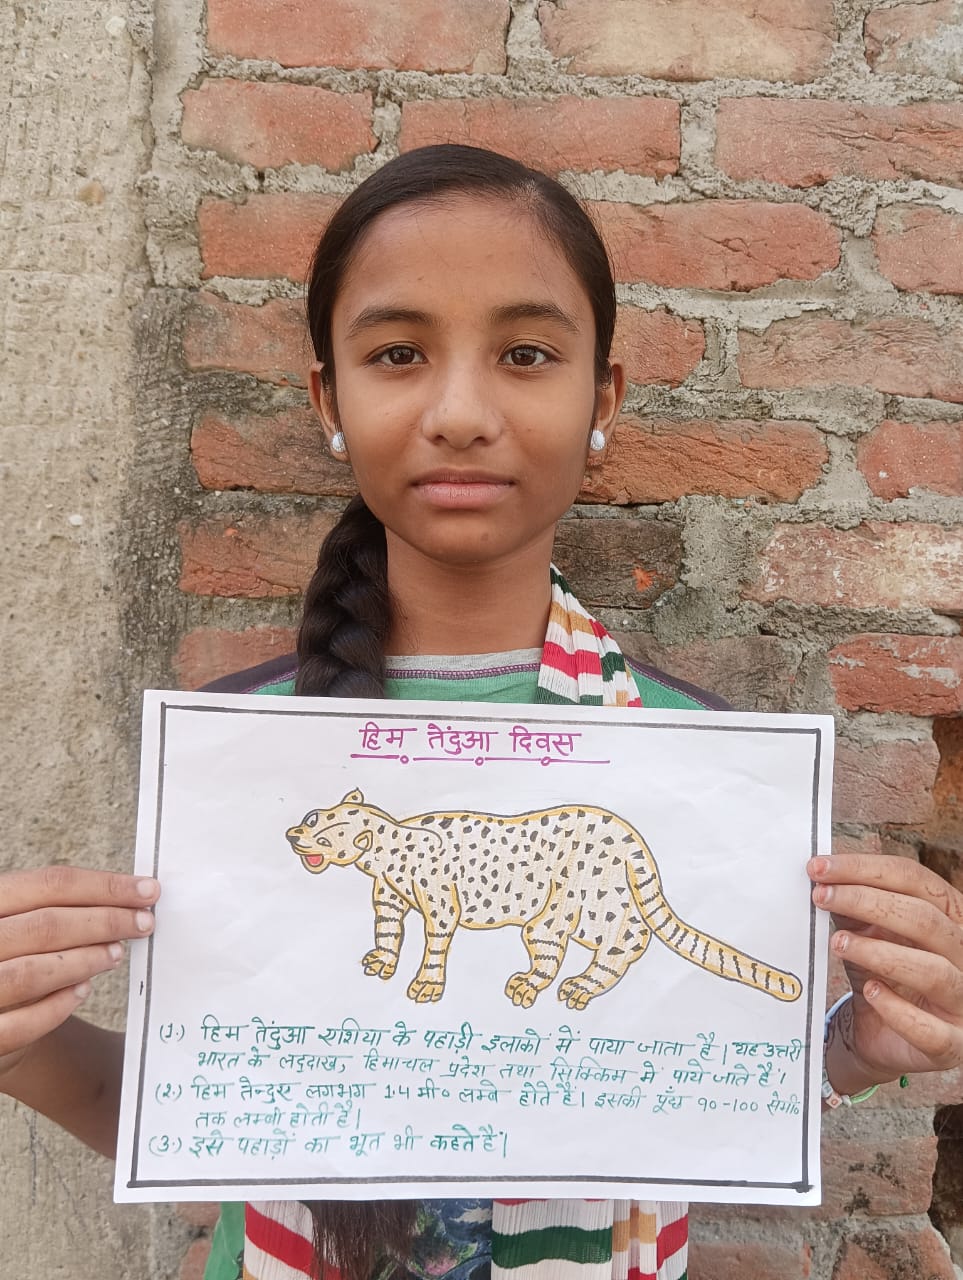 हिम तेंदुआ दिवस
(1.) हिम तेंदुआ एशिया के पहाड़ी इलाकों में पाया जाता है। यह उत्तरी
भारत के लद्दाख, हिमाचल प्रदेश तथा सिक्किम में पाये जाते हैं।
(2.) हिम तेन्दुए लगभग 1.4 मी० लम्बे होते हैं। इसकी पूँछ 90-100 सेमी०
तक लम्बी होती है।
(3.) इसे पहाड़ों का भूत भी कहते हैं।